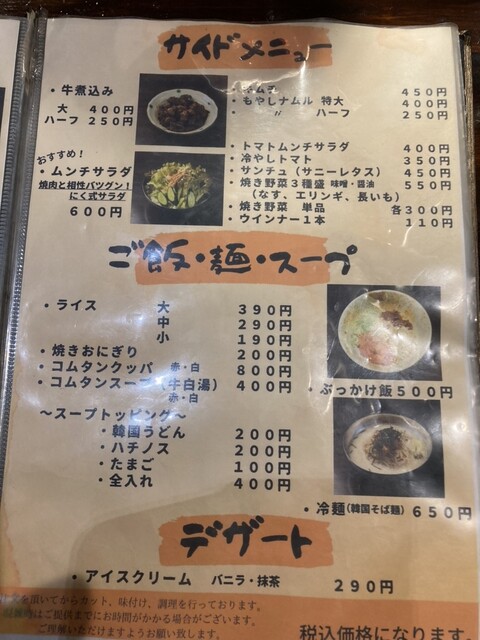 サイドメニュー
・牛煮込み
大 400円
ハーフ 250円
おすすめ!
・ムンチサラダ
焼肉と相性バツグン!
にく式サラダ
600円
450円
・もやしナムル 特大 400円
・ 〃 ハーフ 250円
・トマトムンチサラダ 400円
・冷やしトマト 350円
・サンチュ(サニーレタス) 450円
・焼き野菜3種盛 味噌・醤油 550円
(なす、エリンギ、長いも)
・焼き野菜 単品 各300円
・ウインナー1本 110円
ご飯・麺・スープ
・ライス 大 390円
中 290円
小 190円
・焼きおにぎり 200円
・コムタンクッパ 赤・白 800円
・コムタンスープ(牛白湯) 400円
赤・白
〜スープトッピング〜
・韓国うどん 200円
・ハチノス 200円
・たまご 100円
・全入れ 400円
・ぶっかけ飯500円
・冷麺(韓国そば麺) 650円
デザート
・アイスクリーム バニラ・抹茶 290円
を頂いてからカット、味付け、調理を行っております。
はご提供までにお時間がかかる場合がございます。
ご理解いただけますようお願い致します。
税込価格になります。